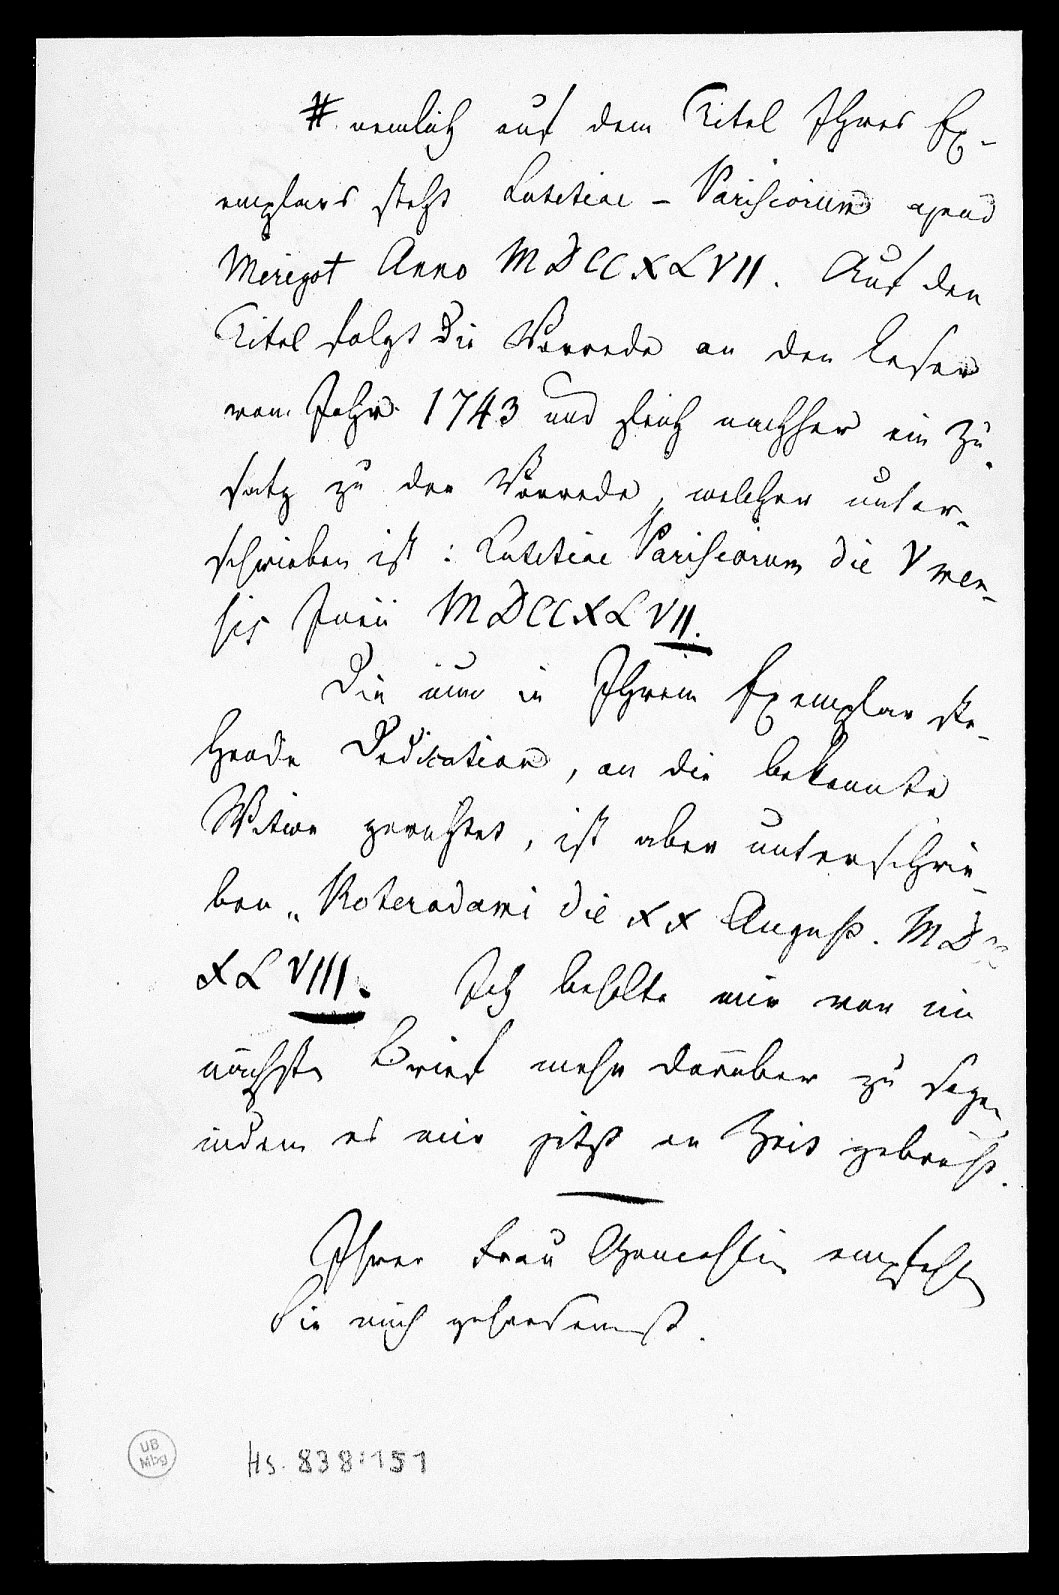 # nemlich auf dem Titel Ihres Ex-
emplars steht Lutetiae - Parisiorum apud
Merigot Anno MDCCXLVII. Auf den
Titel folgt die Vorrede an den Leser
vom Jahr 1743 und steht nachher ein Zu-
satz zu der Vorrede, welcher unter-
schrieben ist: Lutetiae Parisiorum die V men-
sis Junii MDCCXLVII.
Die nun in Ihrem Exemplar ste-
hende Dedication, an die bekannte
Witwe gerichtet, ist aber unterschrie-
ben „Roterodami die XX August. MDCC
XLVIII. Ich behalte mir vor im
nächsten Brief mehr darüber zu sagen,
indem es mir jetzt an Zeit gebricht.
Ihrer Frau Gemahlin empfehlen
Sie mich gehorsamst.
UB
Mbg
Hs. 838:151